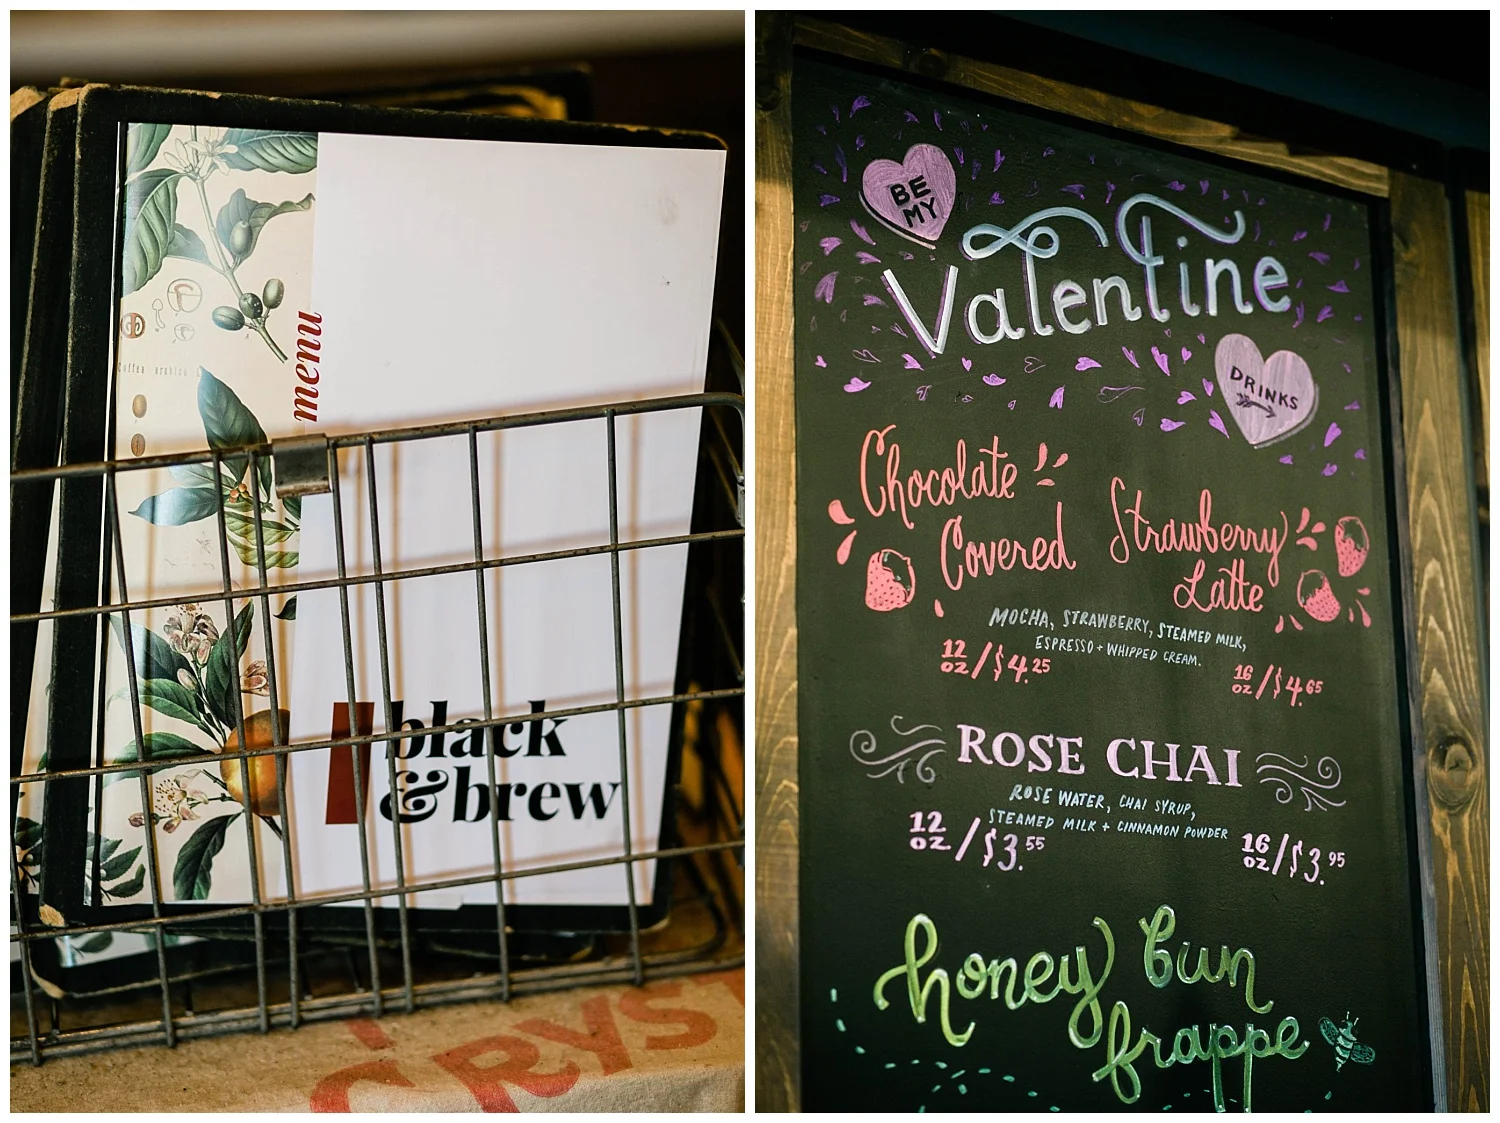 Coffea arabica
menu
black
&brew
CRYST
BE
MY
Valentine
DRINKS
Chocolate
Covered
Strawberry
Latte
MOCHA, STRAWBERRY, STEAMED MILK,
ESPRESSO + WHIPPED CREAM.
12 OZ / $4.25
16 OZ / $4.65
ROSE CHAI
ROSE WATER, CHAI SYRUP,
STEAMED MILK + CINNAMON POWDER
12 OZ / $3.55
16 OZ / $3.95
honey bun
frappe